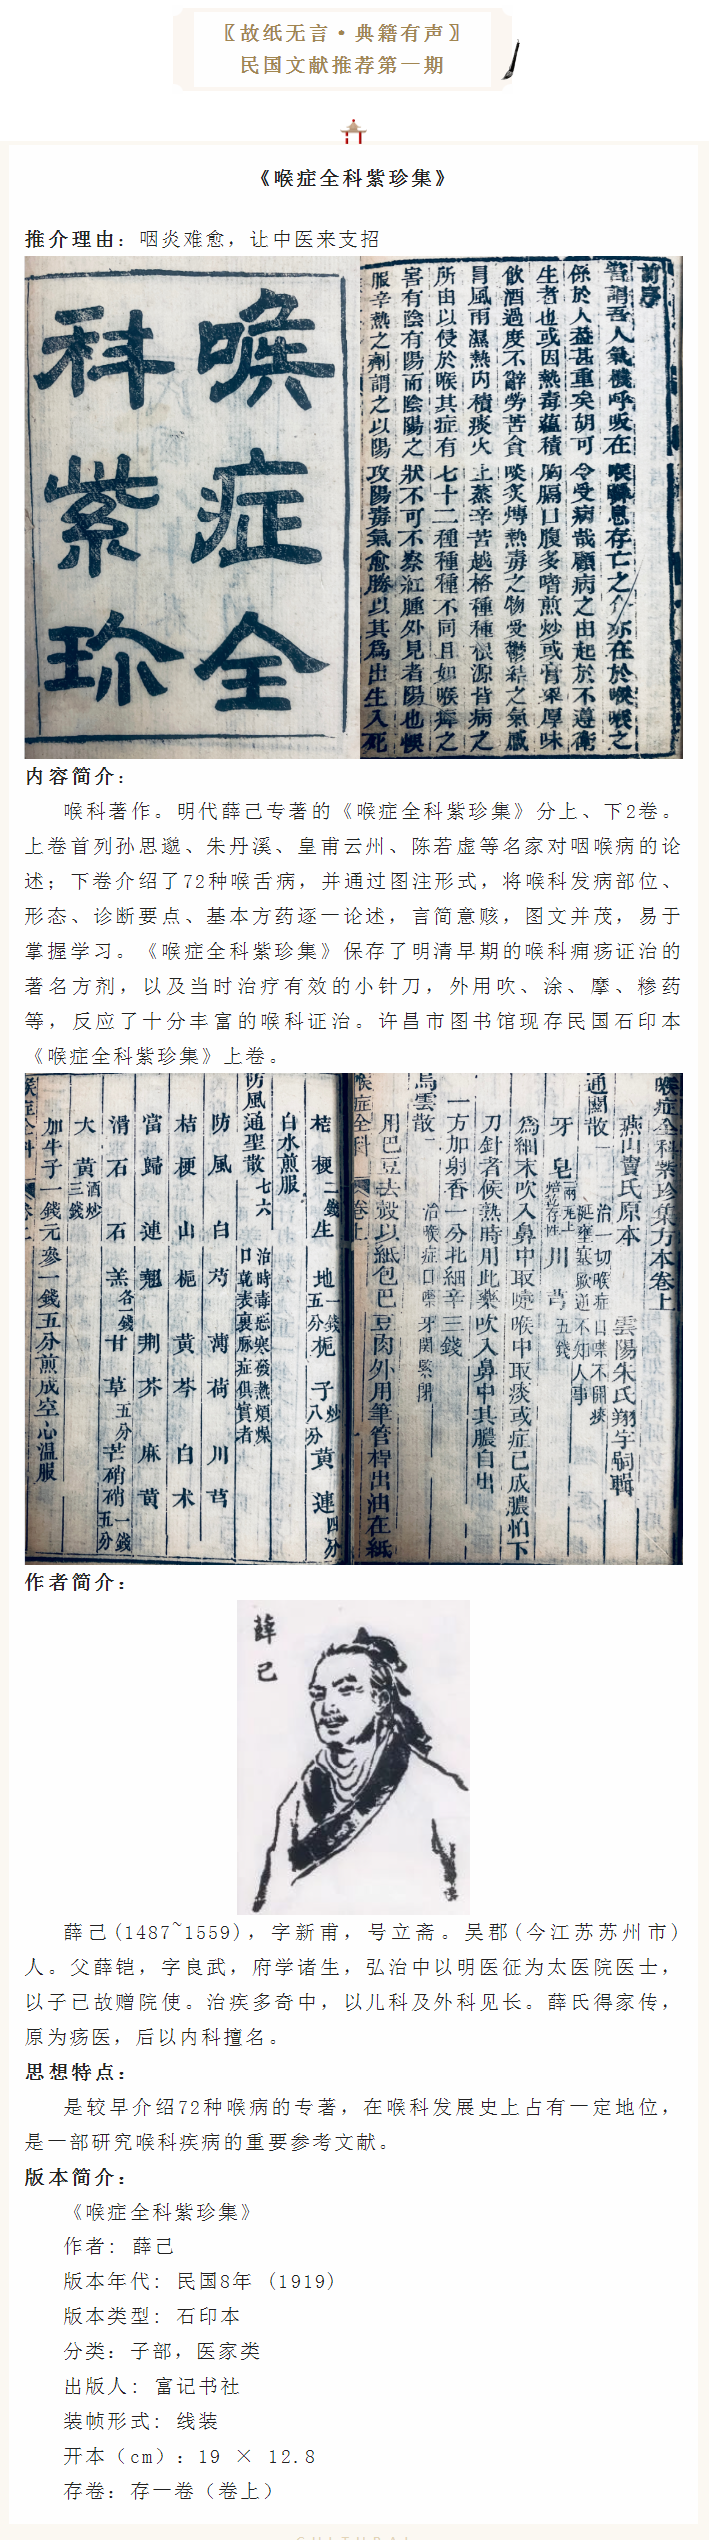 〖故纸无言·典籍有声〗
民国文献推荐第一期
《喉症全科紫珍集》
推介理由：咽炎难愈，让中医来支招
喉症全
科紫珍
前序
嘗謂吾人氣機呼吸在喉聯息存亡之介亦在於喉喉之
係於人益甚重矣胡可令受病哉顧病之由起於不遵衛
生者也或因熱毒蘊積胸膈口腹多嗜煎炒或膏粱厚味
飲酒過度不辭勞苦貪啖炙煿熱毒之物受鬱結之氣感
冒風雨濕熱内積痰火上蒸辛苦越格種種根源皆病之
所由以侵於喉其症有七十二種種種不同且如喉痺之
害有陰有陽而陰陽之狀不可不察紅腫外見者陽也悞
服辛熱之劑謂之以陽攻陽毒氣愈勝以其為出生入死
内容简介：
喉科著作。明代薛己专著的《喉症全科紫珍集》分上、下2卷。
上卷首列孙思邈、朱丹溪、皇甫云州、陈若虚等名家对咽喉病的论
述；下卷介绍了72种喉舌病，并通过图注形式，将喉科发病部位、
形态、诊断要点、基本方药逐一论述，言简意赅，图文并茂，易于
掌握学习。《喉症全科紫珍集》保存了明清早期的喉科痈疡证治的
著名方剂，以及当时治疗有效的小针刀，外用吹、涂、摩、糁药
等，反应了十分丰富的喉科证治。许昌市图书馆现存民国石印本
《喉症全科紫珍集》上卷。
喉症全科紫珍集方本卷上
燕山竇氏原本 雲陽朱氏翔宇嗣輯
通關散一 治一切喉症口噤不開痰
涎壅塞厥逆不知人事
牙皂一兩先上焙乾存性 川芎五錢
爲細末吹入鼻中取嚏喉中取痰或症已成膿怕下
刀針者候熟時用此藥吹入鼻中其膿自出
一方加射香一分北細辛三錢
烏雲散二 治喉症口噤牙關緊閉
用巴豆去殼以紙包巴豆肉外用筆管桿出油在紙
喉症全科 卷上
桔梗二錢 生地一錢五分 梔子炒八分 黃連四分
白水煎服
防風通聖散七六 治時毒惡寒發熱煩燥
口乾表裏脉症俱實者
防風 白芍 薄荷 川芎
桔梗 山梔 黃芩 白术
當歸 連翹 荆芥 麻黃
滑石 石羔各一錢 甘草五分 芒硝硝一錢五分
大黃酒炒三錢
加牛子一錢元參一錢五分煎成空心温服
喉症全科 卷上
作者简介：
薛己
薛己(1487~1559)，字新甫，号立斋。吴郡(今江苏苏州市)
人。父薛铠，字良武，府学诸生，弘治中以明医征为太医院医士，
以子已故赠院使。治疾多奇中，以儿科及外科见长。薛氏得家传，
原为疡医，后以内科擅名。
思想特点：
是较早介绍72种喉病的专著，在喉科发展史上占有一定地位，
是一部研究喉科疾病的重要参考文献。
版本简介：
《喉症全科紫珍集》
作者： 薛己
版本年代： 民国8年 (1919)
版本类型： 石印本
分类：子部，医家类
出版人： 富记书社
装帧形式： 线装
开本（cm）：19 × 12.8
存卷：存一卷（卷上）
CULTURAL